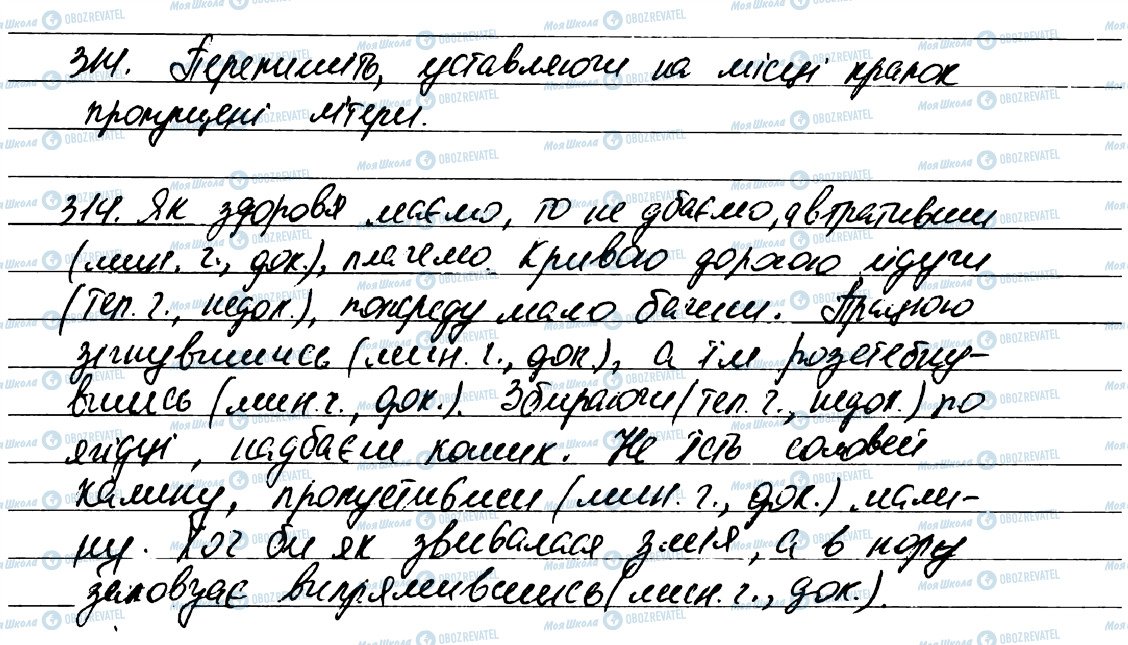 314. Перепишіть, уставляючи на місці крапок
пропущені літери.
314. Як здоровя маємо, то не дбаємо, а втративши
(мин. ч., док.), плачемо. Кривою дорогою йдучи
(теп. ч., недок.), попереду мало бачиш. Працюю
зігнувшись (мин. ч., док.), а їм розстебну-
вшись (мин. ч., док.). Збираючи (теп. ч., недок.) по
ягідці, надбаєш кошик. Не їсть соловей
калину, пропустивши (мин. ч., док.) мали-
ну. Хоч би як звивалася змія, а в нору
заповзає випрямившись (мин. ч., док.).
МояШкола OBOZREVATEL